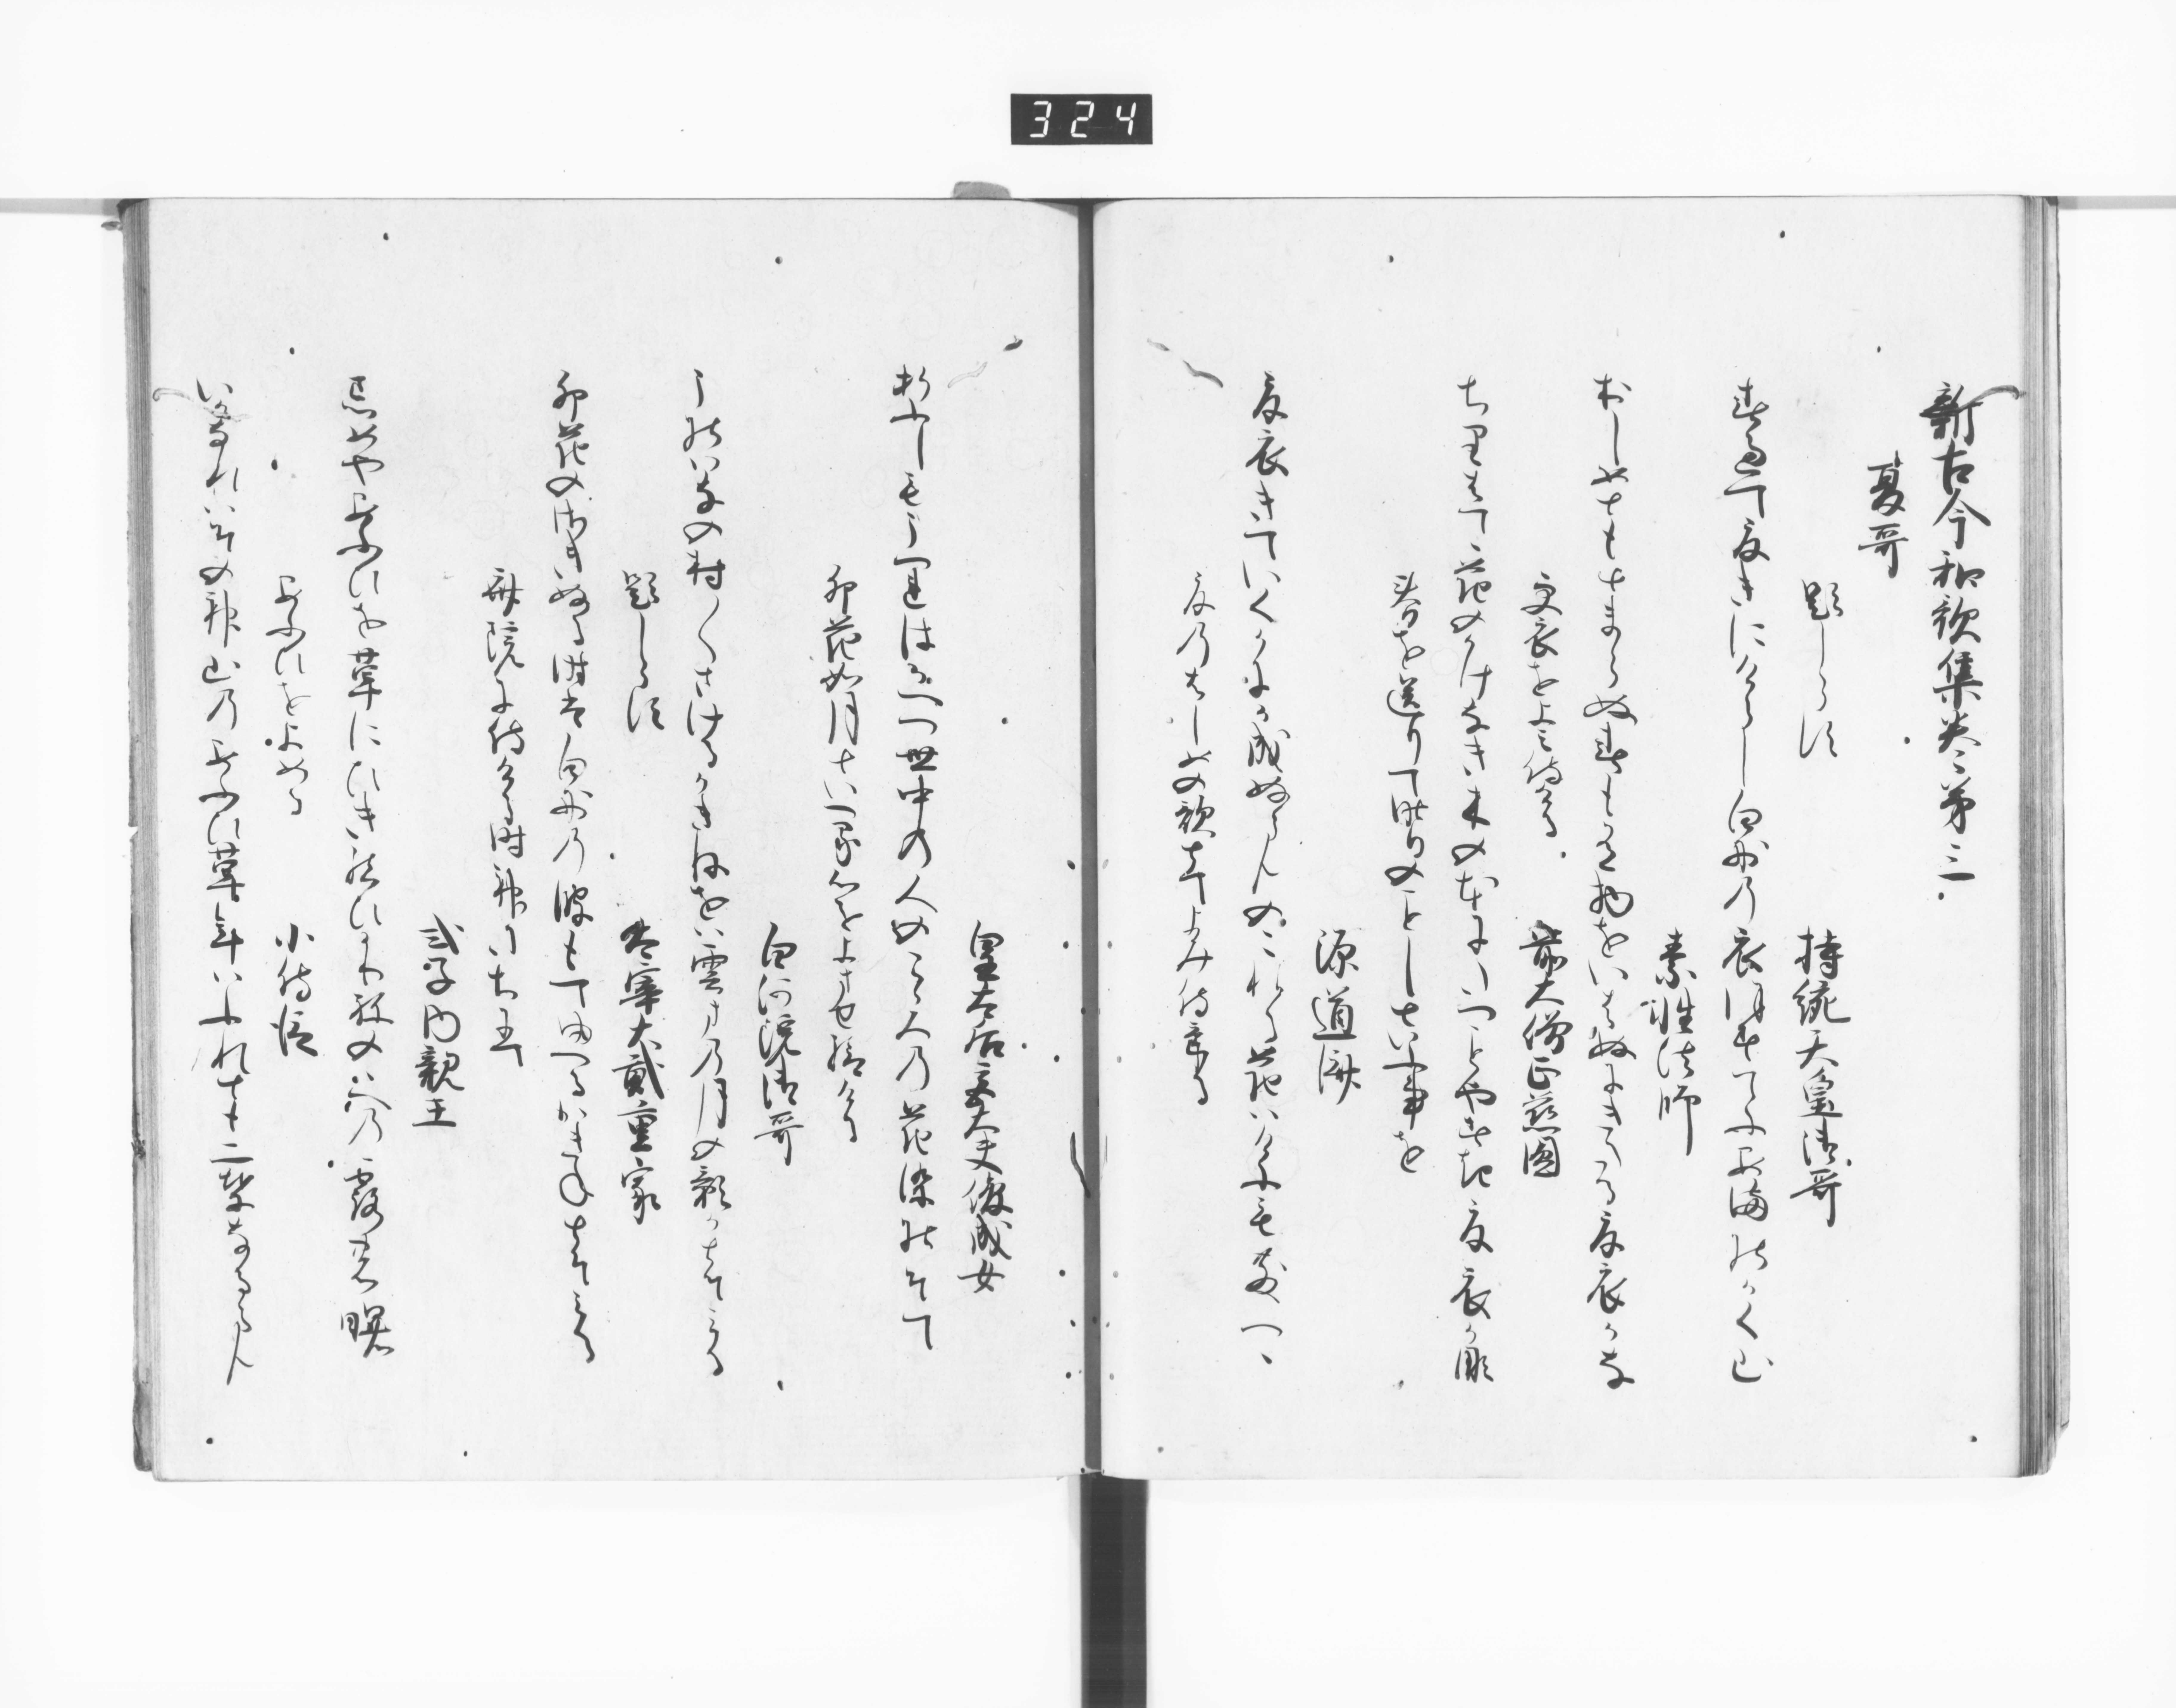 324
新古今和歌集巻第三
夏哥
題しらす
持統天皇御哥
春過て夏きにけらし白妙の衣ほすてふあまのかく山
素性法師
おしめともとまらぬ春もある物をいはぬにきたる夏衣かな
更衣をよみ侍ける
前大僧正慈円
ちりはてゝ花のかけなき木の本にたつことやすき夏衣かな
春を送りて昨日のことしといふ事を
源道済
夏衣きていくかにか成ぬらんのこれる花はけふもちりつゝ
夏のはしめの歌とてよみ侍ける
皇太后宮大夫俊成女
折ふしもうつれはかへつ世中の人の心の花染の袖
卯花如月といへる心をよませ給ける
白河院御哥
うの花の村々さけるかきねをは雲まの月の影かとそみる
題しらす
太宰大貳重家
卯花のさきぬる時は白妙の波もてゆへるかきねとそみる
斎院に侍ける時神たちにて
式子内親王
忘めやあふひを草にひき結ひかりねの野への露の曙
あふひをよめる
小侍従
いかなれはその神山のあふひ草年はふれとも二葉なるらん